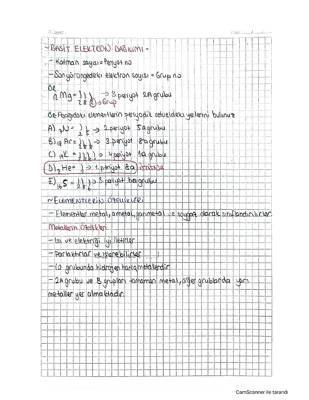 - BASİT ELEKTRON DAĞILIMI -
- Katman sayısı = Periyot no
- Son yörüngedeki elektron sayısı = Grup no
Ör
Mg = ))) → 3 periyot 2A grubu
2 8 2 → Grup
Ör Aşağıdaki elementlerin periyodik cetveldeki yerlerini bulunuz
A) 7N = )) → 2 periyot 5a grubu
B) 18Ar = ))) → 3 periyot 8a grubu
C) 19K = )))) → 4 periyot 1a grubu
D) 2He = ) → 1 periyot 8a
E) 16S = ))) → 3 periyot 6a grubu
~ ELEMENTLERİN ÖZELLİKLERİ
- Elementler metal, ametal, yarımetal ve soygaz olarak sınıflandırılırlar.
Metallerin Özellikleri
- Isı ve elektriği iyi iletirler
- Parlaktırlar ve işlenebilirler
- 1A grubunda hidrojen hariç metallerdir
- 2A grubu ve B grupları tamamen metal, diğer gruplarda yarı
metaller yer almaktadır.
CamScanner ile tarandı